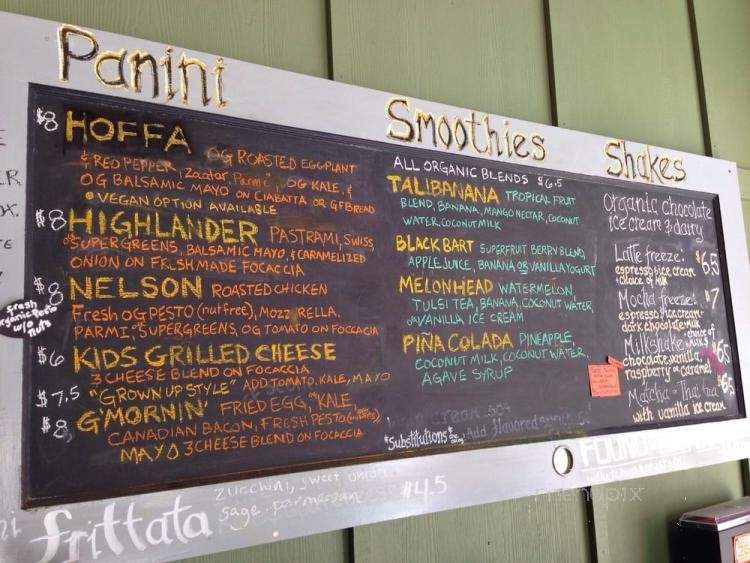 Panini
$8 HOFFA OG ROASTED EGGPLANT
& RED PEPPER, Zaatar, Parmi, OG KALE, &
OG BALSAMIC MAYO ON CIABATTA OR GF BREAD
• VEGAN OPTION AVAILABLE
$8 HIGHLANDER PASTRAMI, SWISS,
OG SUPERGREENS, BALSAMIC MAYO, & CARAMELIZED
ONION ON FRESHMADE FOCACCIA
$8 NELSON ROASTED CHICKEN
Fresh OG PESTO (nut free), MOZZ RELLA,
PARMI, OG SUPERGREENS, OG TOMATO ON FOCCACIA
fresh
organic Pesto
w/o
nuts
$6 KIDS GRILLED CHEESE
3 CHEESE BLEND ON FOCACCIA
$7.5 "GROWN UP STYLE" ADD TOMATO, KALE, MAYO
$8 G'MORNIN' FRIED EGG, KALE,
CANADIAN BACON, FRESH PESTO (no nuts)
MAYO 3 CHEESE BLEND ON FOCACCIA
frittata
zucchini, sweet onion
sage, parmesan
$4.5
Smoothies
ALL ORGANIC BLENDS $6.5
TALIBANANA TROPICAL FRUIT
BLEND, BANANA, MANGO NECTAR, COCONUT
WATER, COCONUT MILK
BLACK BART SUPERFRUIT BERRY BLEND,
APPLE JUICE, BANANA OR VANILLA YOGURT
MELONHEAD WATERMELON
TULSI TEA, BANANA, COCONUT WATER,
OR VANILLA ICE CREAM
PIÑA COLADA PINEAPPLE,
COCONUT MILK, COCONUT WATER,
AGAVE SYRUP
cream 50¢
*Substitutions Add flavored syrup 50¢
Shakes
Organic chocolate
ice cream & dairy
Latte freeze: $6.5
espresso, ice cream
choice of milk
Mocha freeze: $7
espresso, ice cream
dark chocolate milk
Milkshake choice of
milk $6.5
chocolate, vanilla
raspberry or caramel
Matcha or Thai tea $6.5
with vanilla ice cream
menupix